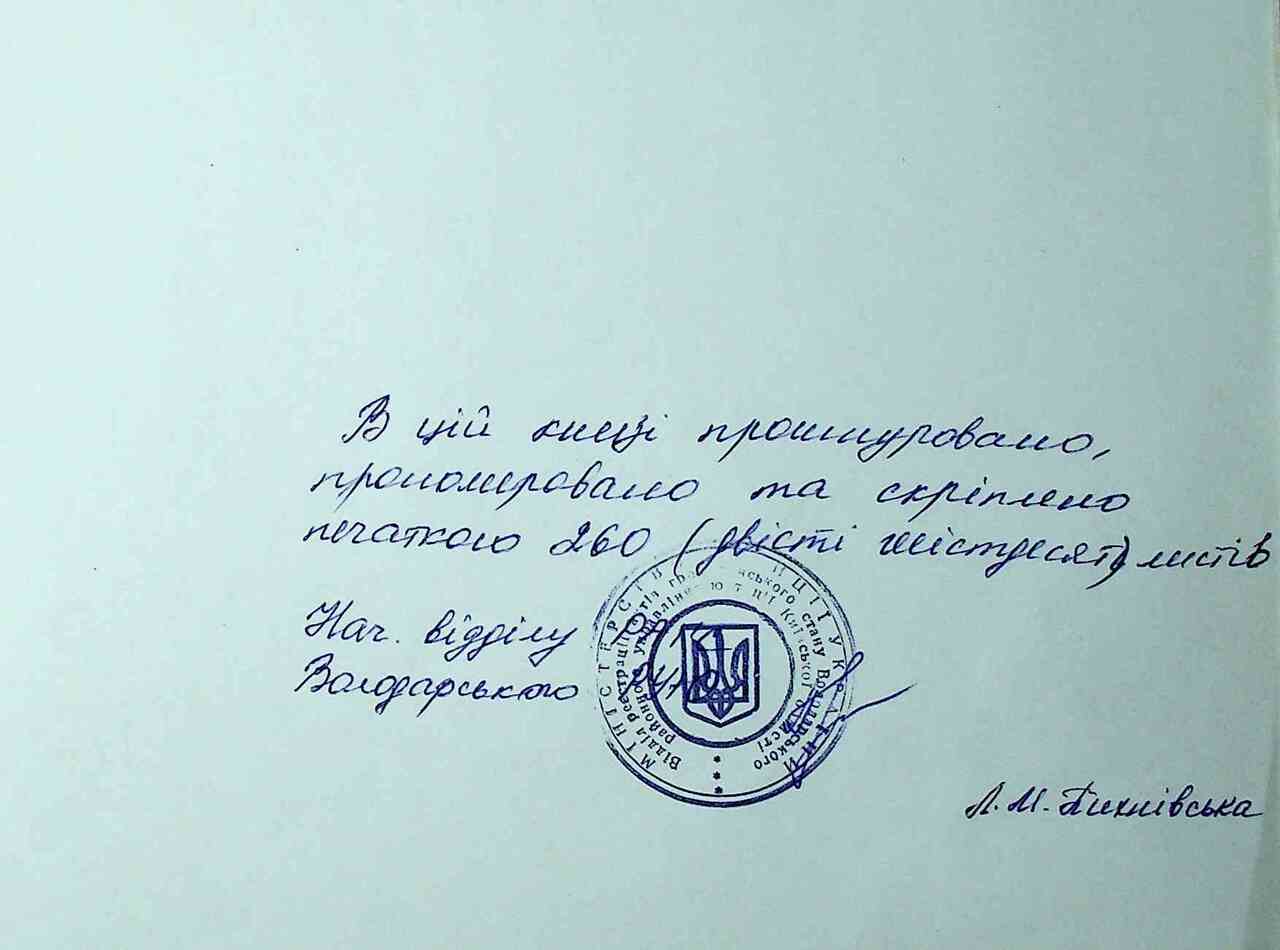 В цій книзі прошнуровано,
прономеровано та скріплено
печаткою 260 (двісті шістдесят) листів
Нач. відділу
Володарського
МІНІСТЕРСТВО ЮСТИЦІЇ УКРАЇНИ
Відділ реєстрації актів громадянського стану Володарського
районного управління юстиції Київської області
Л. М. Пихнівська